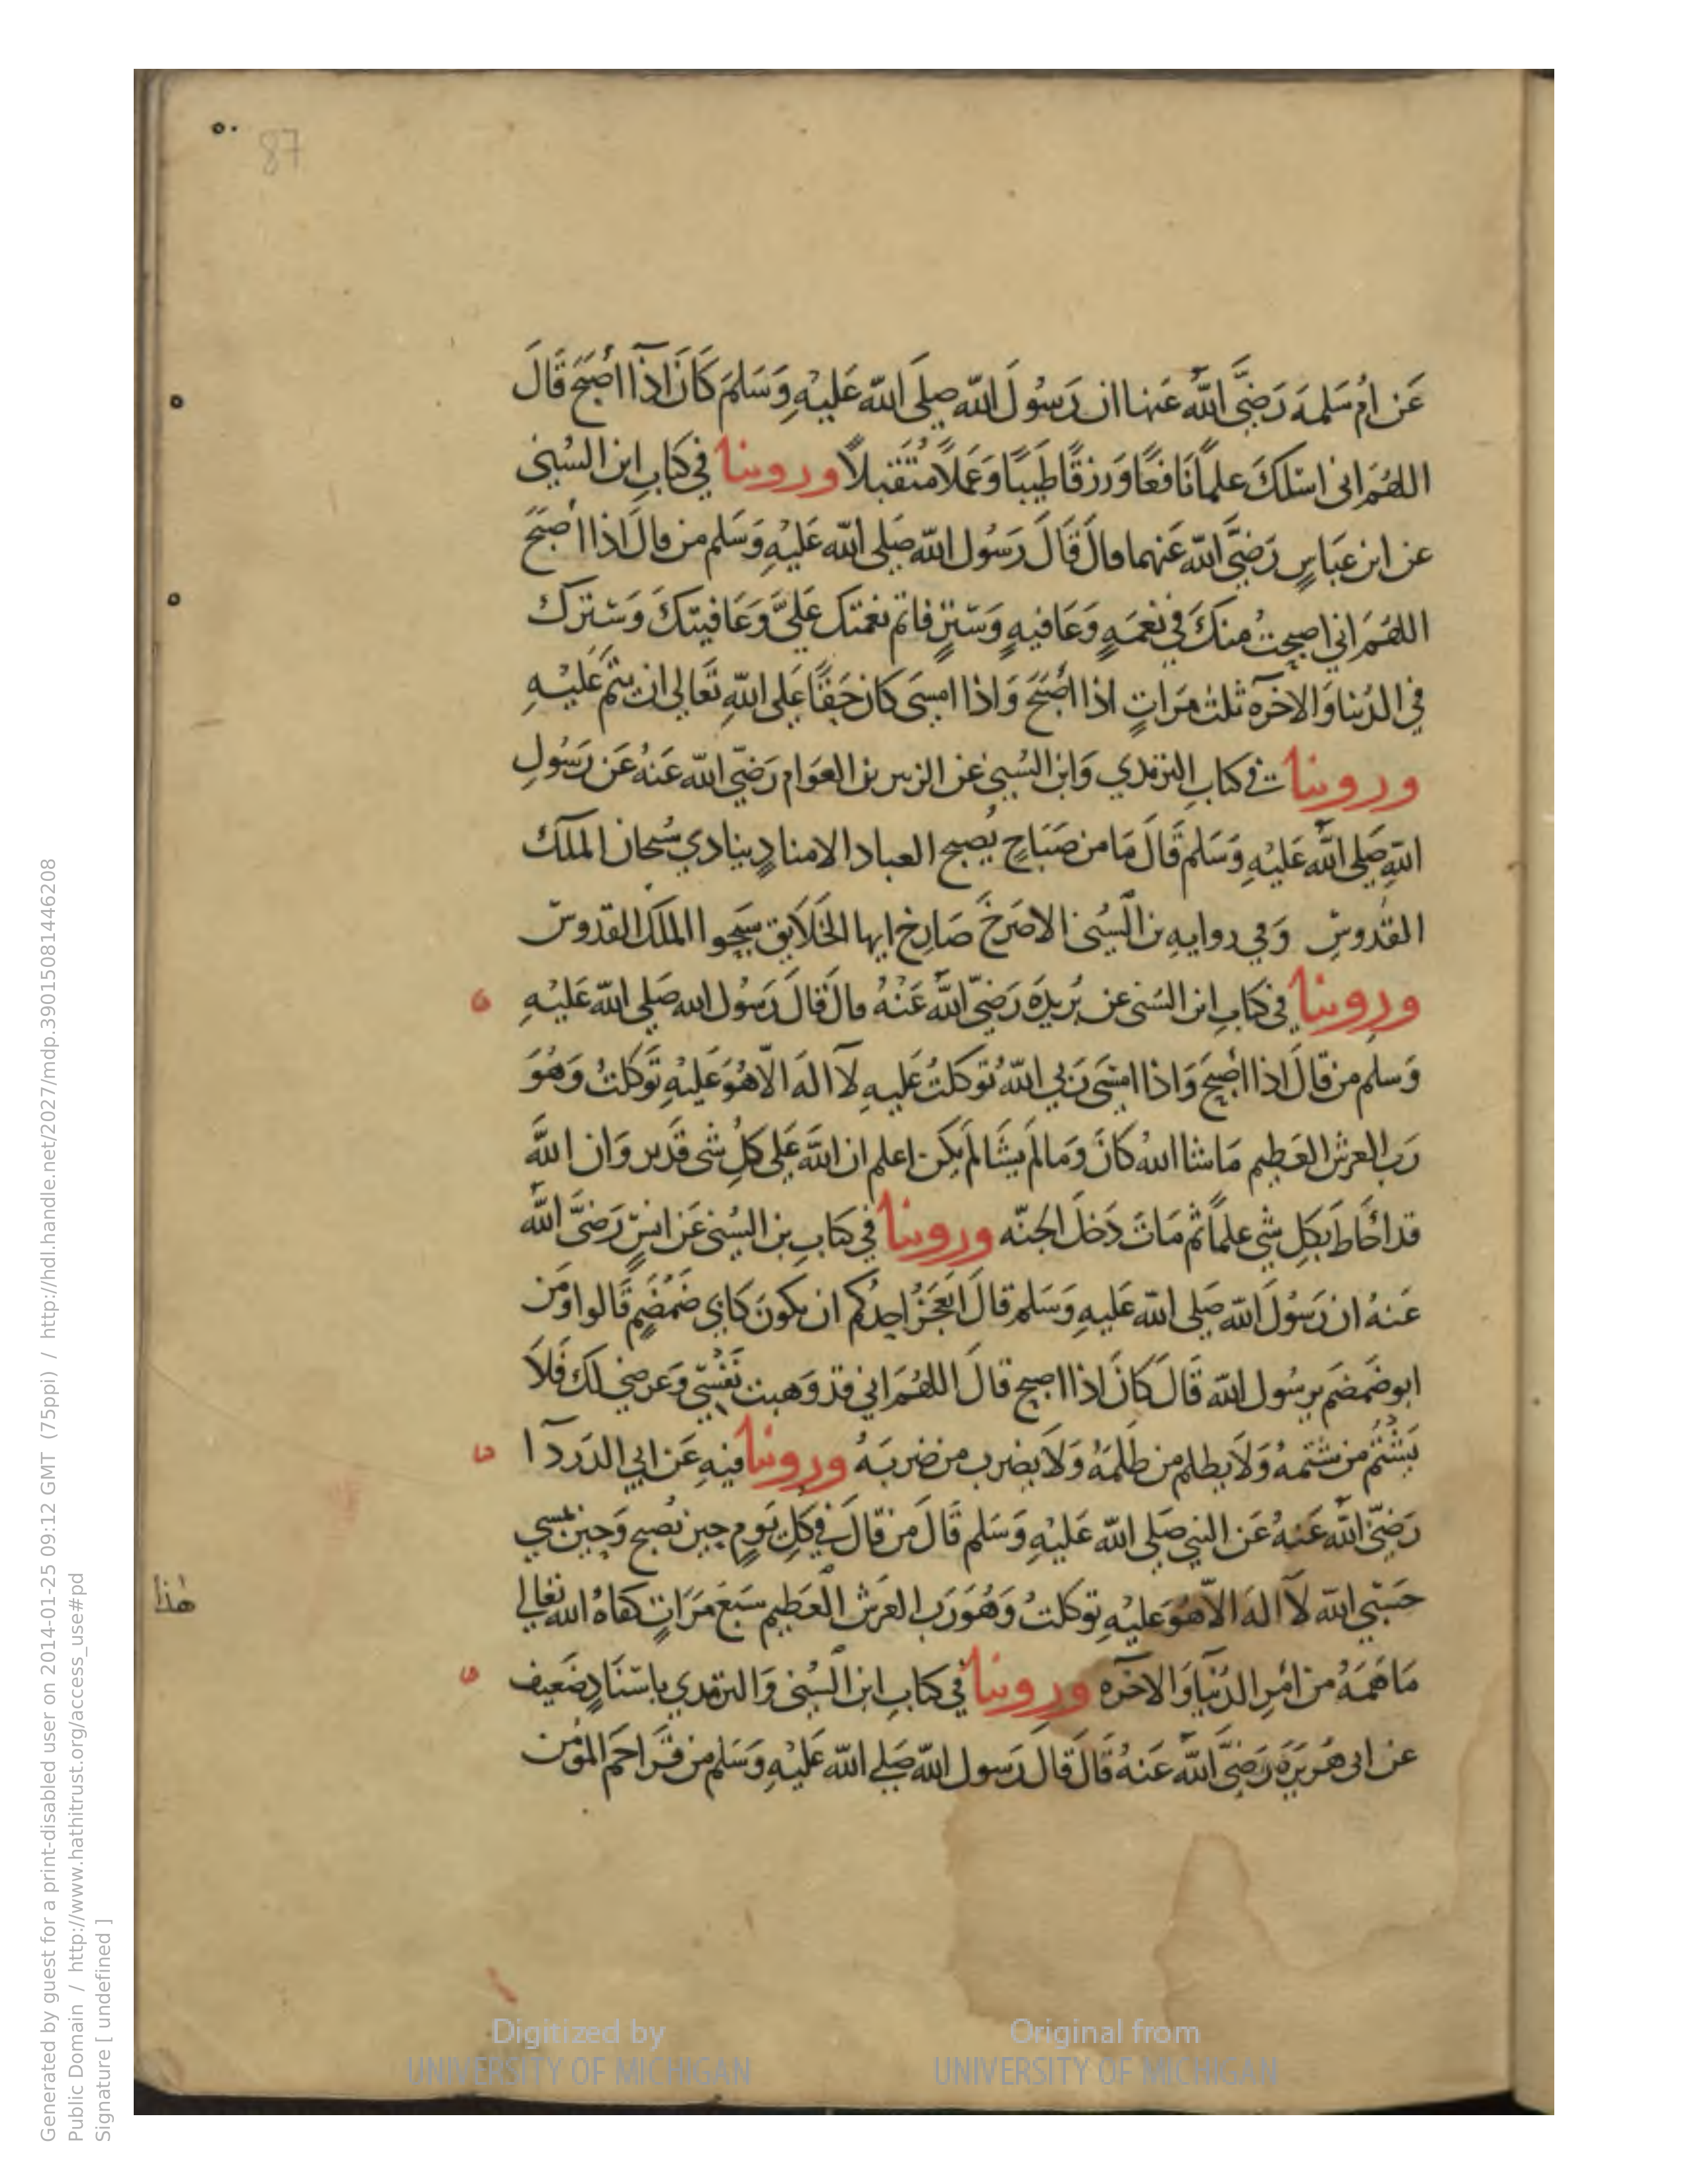 ٥٠
87
عَن اُم سَلمهَ رَضيَّ اللهُ عَنها ان رَسُولَ الله صلى الله عَليْهِ وَسَلمَ كَانَ اذَا اَصْبَحَ قَالَ
اللهُمَ انى اسْلكَ علماً نَافعًا وَرزقًا طَيبًا وَعَملاً مُتَقبلاً وروينا في كتابِ ابن السُنى
عن ابن عبَاسٍ رَضيَّ الله عَنهما قال قَالَ رَسُول الله صَلى الله عَليْهِ وَسَلم من قالَ اذا اَصبَحَ
اللهُمَ اني اصبحتُ منكَ في نعْمَهٍ وَعَافيهٍ وَسَترٍ فاتم نعمَتك عَليَّ وَعَافيتكَ وَسَترَك
في الدُنيا وَالاخرَه ثلث مَراتٍ اذا اَصْبَحَ وَاذا امسَى كان حَقًا عَلى اللهِ تَعَالى ان يتمَ عَليْهِ
وروينا في كتابِ الترمذي وَابن السُني عَن الزبير بن العوَام رَضيَ الله عَنهُ عَن رَسُولِ
اللهِ صَلى اللهُ عَليْهِ وَسَلم قَالَ مَا من صَبَاحٍ يُصبح العباد الا منادٍ ينادي سُبحان الملك
القُدوسِ وَفي روايهِ بن السُنى الا صَرخَ صَارخ ايها الخَلَايق سَبِحوا الملَك القدوسَ
وروينا في كتابِ ابن السُنى عن بُريدَه رَضيَّ اللهُ عَنْهُ قال قَالَ رَسُول الله صَلى الله عَليْهِ
وَسلم من قالَ اذا اَصْبحَ وَاذا امسَى رَبي اللهُ تَوكلتُ عَليهِ لآ الهَ الاّ هُوَ عَليْهِ تَوكلتُ وَهُوَ
رَب العرش العَظيم مَا شا اللهُ كَانَ وَما لَم يَشَا لَم يَكن اعلم ان اللهَ عَلى كلِ شى قَدير وَان اللهَ
قد احَاطَ بكلِ شي علماً ثم مَاتَ دَخلَ الجنّه وروينا في كتابِ بن السُنى عَن انسٍ رَضيَّ الله
عَنهُ ان رَسُولَ الله صَلى الله عَليهِ وَسَلم قالَ اَيَعجَزُ احدكُم ان يكونَ كَابي ضَمْضَمٍ قَالوا وَمَن
ابو ضَمضَم يرسُول الله قَالَ كَانَ اذا اصبح قالَ اللهُمَ اني قد وَهبت نَفْسيّ وَعَرضى لكَ فَلاَ
يَشْتُم من شتمهُ وَلاَ يظلم من ظلَمَهُ وَلاَ يضرب من ضربَهُ وروينا فيهِ عَن ابي الدَردآ ا
رَضيَّ اللهُ عَنهُ عَن النبي صَلى الله عَليْهِ وَسَلم قَالَ من قالَ في كلِ يَومٍ حين يُصبح وَحين يمسي
حَسْبي الله لآ الهَ الاّ هُوَ عَليْهِ تَوكلتُ وَهُوَ رَب العَرش العَظيم سَبعَ مَرَاتٍ كفاهُ الله تعالى
هذا
مَا هَمَهُ من امْرِ الدُنيَا وَالاخرَه وروينا في كتابِ ابن السُنى وَالترمذي باسنَادٍ ضَعيف
عن ابى هُريرَه رَضيَّ اللهُ عَنهُ قَالَ قالَ رَسول الله صَلى الله عَليْهِ وَسَلم من قرَا حَم المؤمن
Digitized by
UNIVERSITY OF MICHIGAN
Original from
UNIVERSITY OF MICHIGAN
Generated by guest for a print-disabled user on 2014-01-25 09:12 GMT (75ppi) / http://hdl.handle.net/2027/mdp.39015081446208
Public Domain / http://www.hathitrust.org/access_use#pd
Signature [ undefined ]